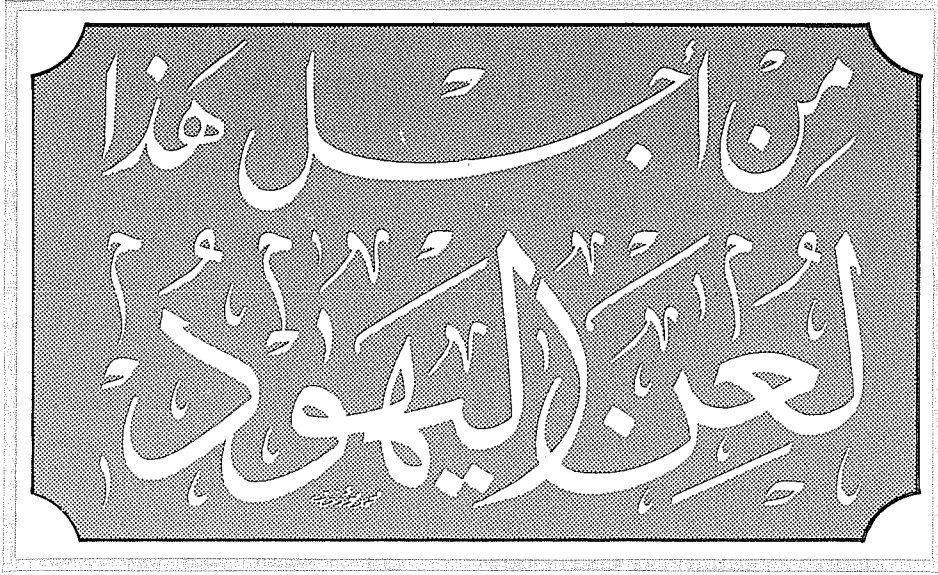 مِنْ أَجْل هَذَا
لُعِنَ اليَهُودُ